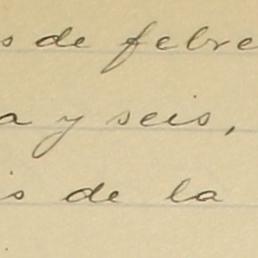 s de febre
a y seis,
is de la